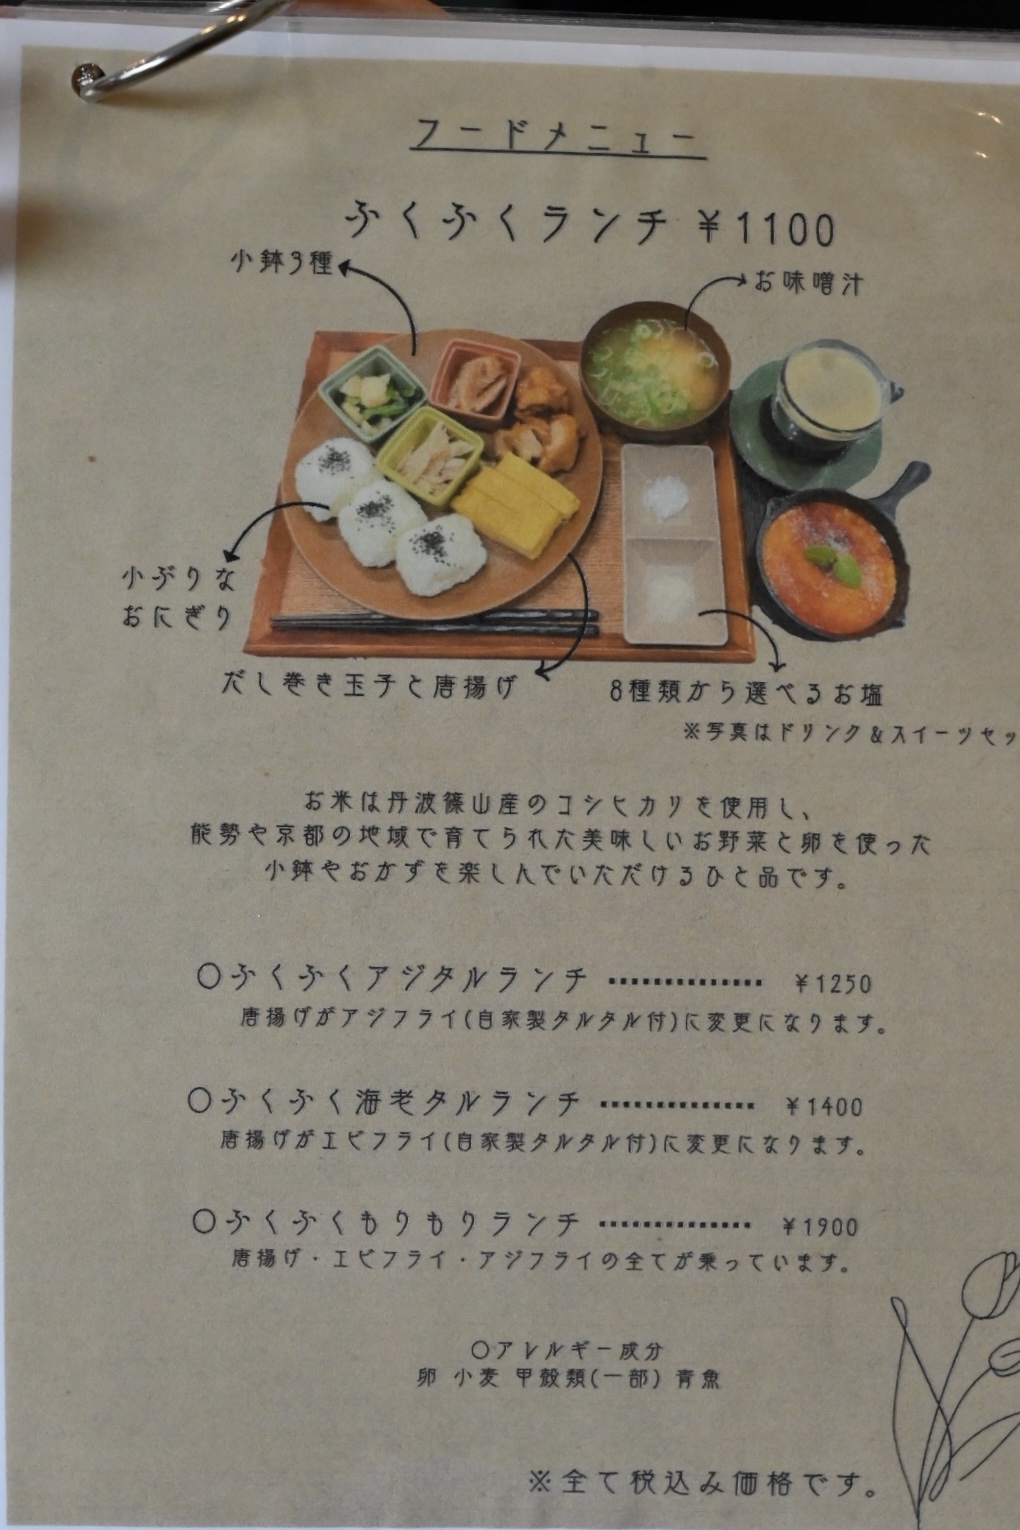 フードメニュー
ふくふくランチ ¥1100
小鉢3種
お味噌汁
小ぶりな
おにぎり
だし巻き玉子と唐揚げ
8種類から選べるお塩
※写真はドリンク&スイーツセッ
お米は丹波篠山産のコシヒカリを使用し、
能勢や京都の地域で育てられた美味しいお野菜と卵を使った
小鉢やおかずを楽しんでいただけるひと品です。
〇ふくふくアジタルランチ ▪▪▪▪▪▪▪▪▪▪▪▪▪▪▪ ¥1250
唐揚げがアジフライ(自家製タルタル付)に変更になります。
〇ふくふく海老タルランチ ▪▪▪▪▪▪▪▪▪▪▪▪▪▪▪ ¥1400
唐揚げがエビフライ(自家製タルタル付)に変更になります。
〇ふくふくもりもりランチ ▪▪▪▪▪▪▪▪▪▪▪▪▪▪▪ ¥1900
唐揚げ・エビフライ・アジフライの全てが乗っています。
〇アレルギー成分
卵 小麦 甲殻類(一部) 青魚
※全て税込み価格です。